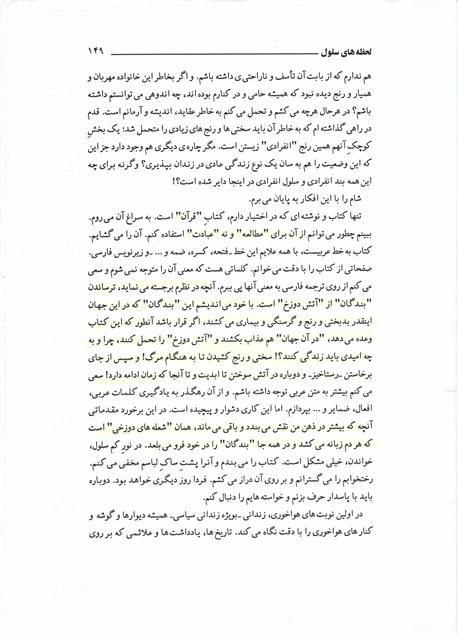 لحظه های سلول ۱۴۹
هم ندارم که از بابت آن تأسف و ناراحتی ی داشته باشم. و اگر بخاطر این خانواده مهربان و
همیار و رنج دیده نبود که همیشه حامی و در کنارم بوده اند، چه اندوهی می توانستم داشته
باشم؟ در هر حال هر چه می کشم و تحمل می کنم به خاطر عقاید، اندیشه و آرمانم است. قدم
در راهی گذاشته ام که به خاطر آن باید سختی ها و رنج های زیادی را متحمل شد؛ یک بخشِ
کوچکِ آنهم همین رنج "انفرادی" زیستن است. مگر چاره ی دیگری هم وجود دارد جز این
که این وضعیت را هم به سان یک نوع زندگی عادی در زندان بپذیری؟ وگرنه برای چه
این همه بند انفرادی و سلول انفرادی در اینجا دایر شده است؟!
شام را با این افکار به پایان می برم.
تنها کتاب و نوشته ای که در اختیار دارم، کتابِ "قرآن" است. به سراغ آن می روم.
ببینم چطور می توانم از آن برای "مطالعه" و نه "عبادت" استفاده کنم. آن را می گشایم.
کتاب به خط عربیست، با همه علایم این خط ـ فتحه، کسره، ضمه و ... ـ و زیرنویس فارسی.
صفحاتی از کتاب را با دقت می خوانم. کلماتی هست که معنی آن را متوجه نمی شوم و سعی
می کنم از روی ترجمه فارسی به معنی آنها پی ببرم. آنچه در نظرم برجسته می نماید، ترساندن
"بندگان" از "آتش دوزخ" است. با خود می اندیشم این "بندگان" که در این جهان
اینقدر بدبختی و رنج و گرسنگی و بیماری می کشند، اگر قرار باشد آنطور که این کتاب
وعده می دهد، "در آن جهان" هم عذاب بکشند و "آتش دوزخ" را تحمل کنند، چرا و به
چه امیدی باید زندگی کنند؟! سختی و رنج کشیدن تا به هنگام مرگ! و سپس از جای
برخاستن ـ رستاخیز ـ و دوباره در آتش سوختن تا ابدیت و تا آنجا که زمان ادامه دارد! سعی
می کنم بیشتر به متن عربی توجه داشته باشم. و از آن رهگذر به یادگیری کلمات عربی،
افعال، ضمایر و ... بپردازم. اما این کاری دشوار و پیچیده است. در این برخورد مقدماتی
آنچه که بیشتر در ذهن من نقش می بندد و باقی می ماند، همان "شعله های دوزخی" است
که هر دم زبانه می کشد و در همه جا "بندگان" را در خود فرو می بلعد. در نور کم سلول،
خواندن، خیلی مشکل است. کتاب را می بندم و آنرا پشتِ ساکِ لباسم مخفی می کنم.
رختخوابم را می گسترانم و بر روی آن دراز می کشم. فردا روز دیگری خواهد بود. دوباره
باید با پاسدار حرف بزنم و خواسته هایم را دنبال کنم.
در اولین نوبت های هواخوری، زندانی ـ بویژه زندانی سیاسی ـ همیشه دیوارها و گوشه و
کنار های هواخوری را با دقت نگاه می کند. تاریخ ها، یادداشت ها و علائمی که بر روی